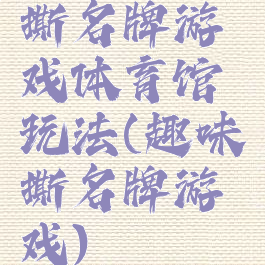 撕名牌游
戏体育馆
玩法(趣味
撕名牌游
戏)